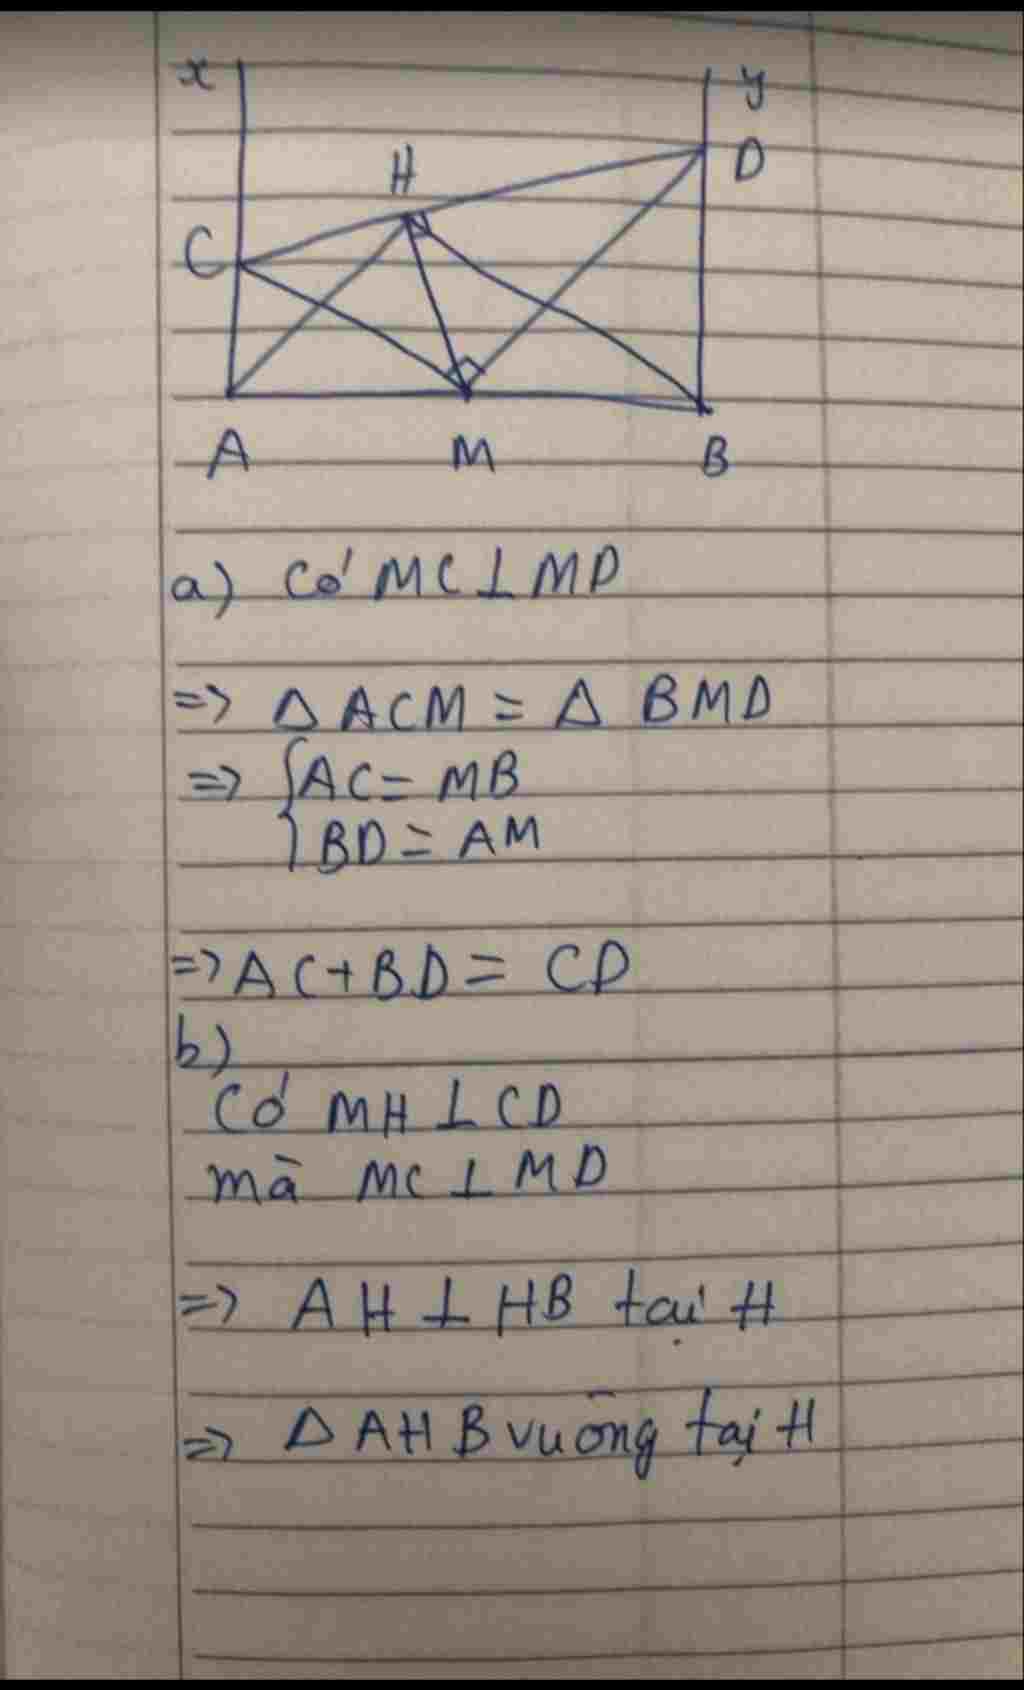 x y
H D
C
A M B
a) Có MC⊥MD
=> Δ ACM = Δ BMD
=> { AC = MB
BD = AM
=> AC+BD = CD
b)
Có MH⊥CD
mà MC⊥MD
=> AH⊥HB tại H
=> Δ AHB vuông tại H